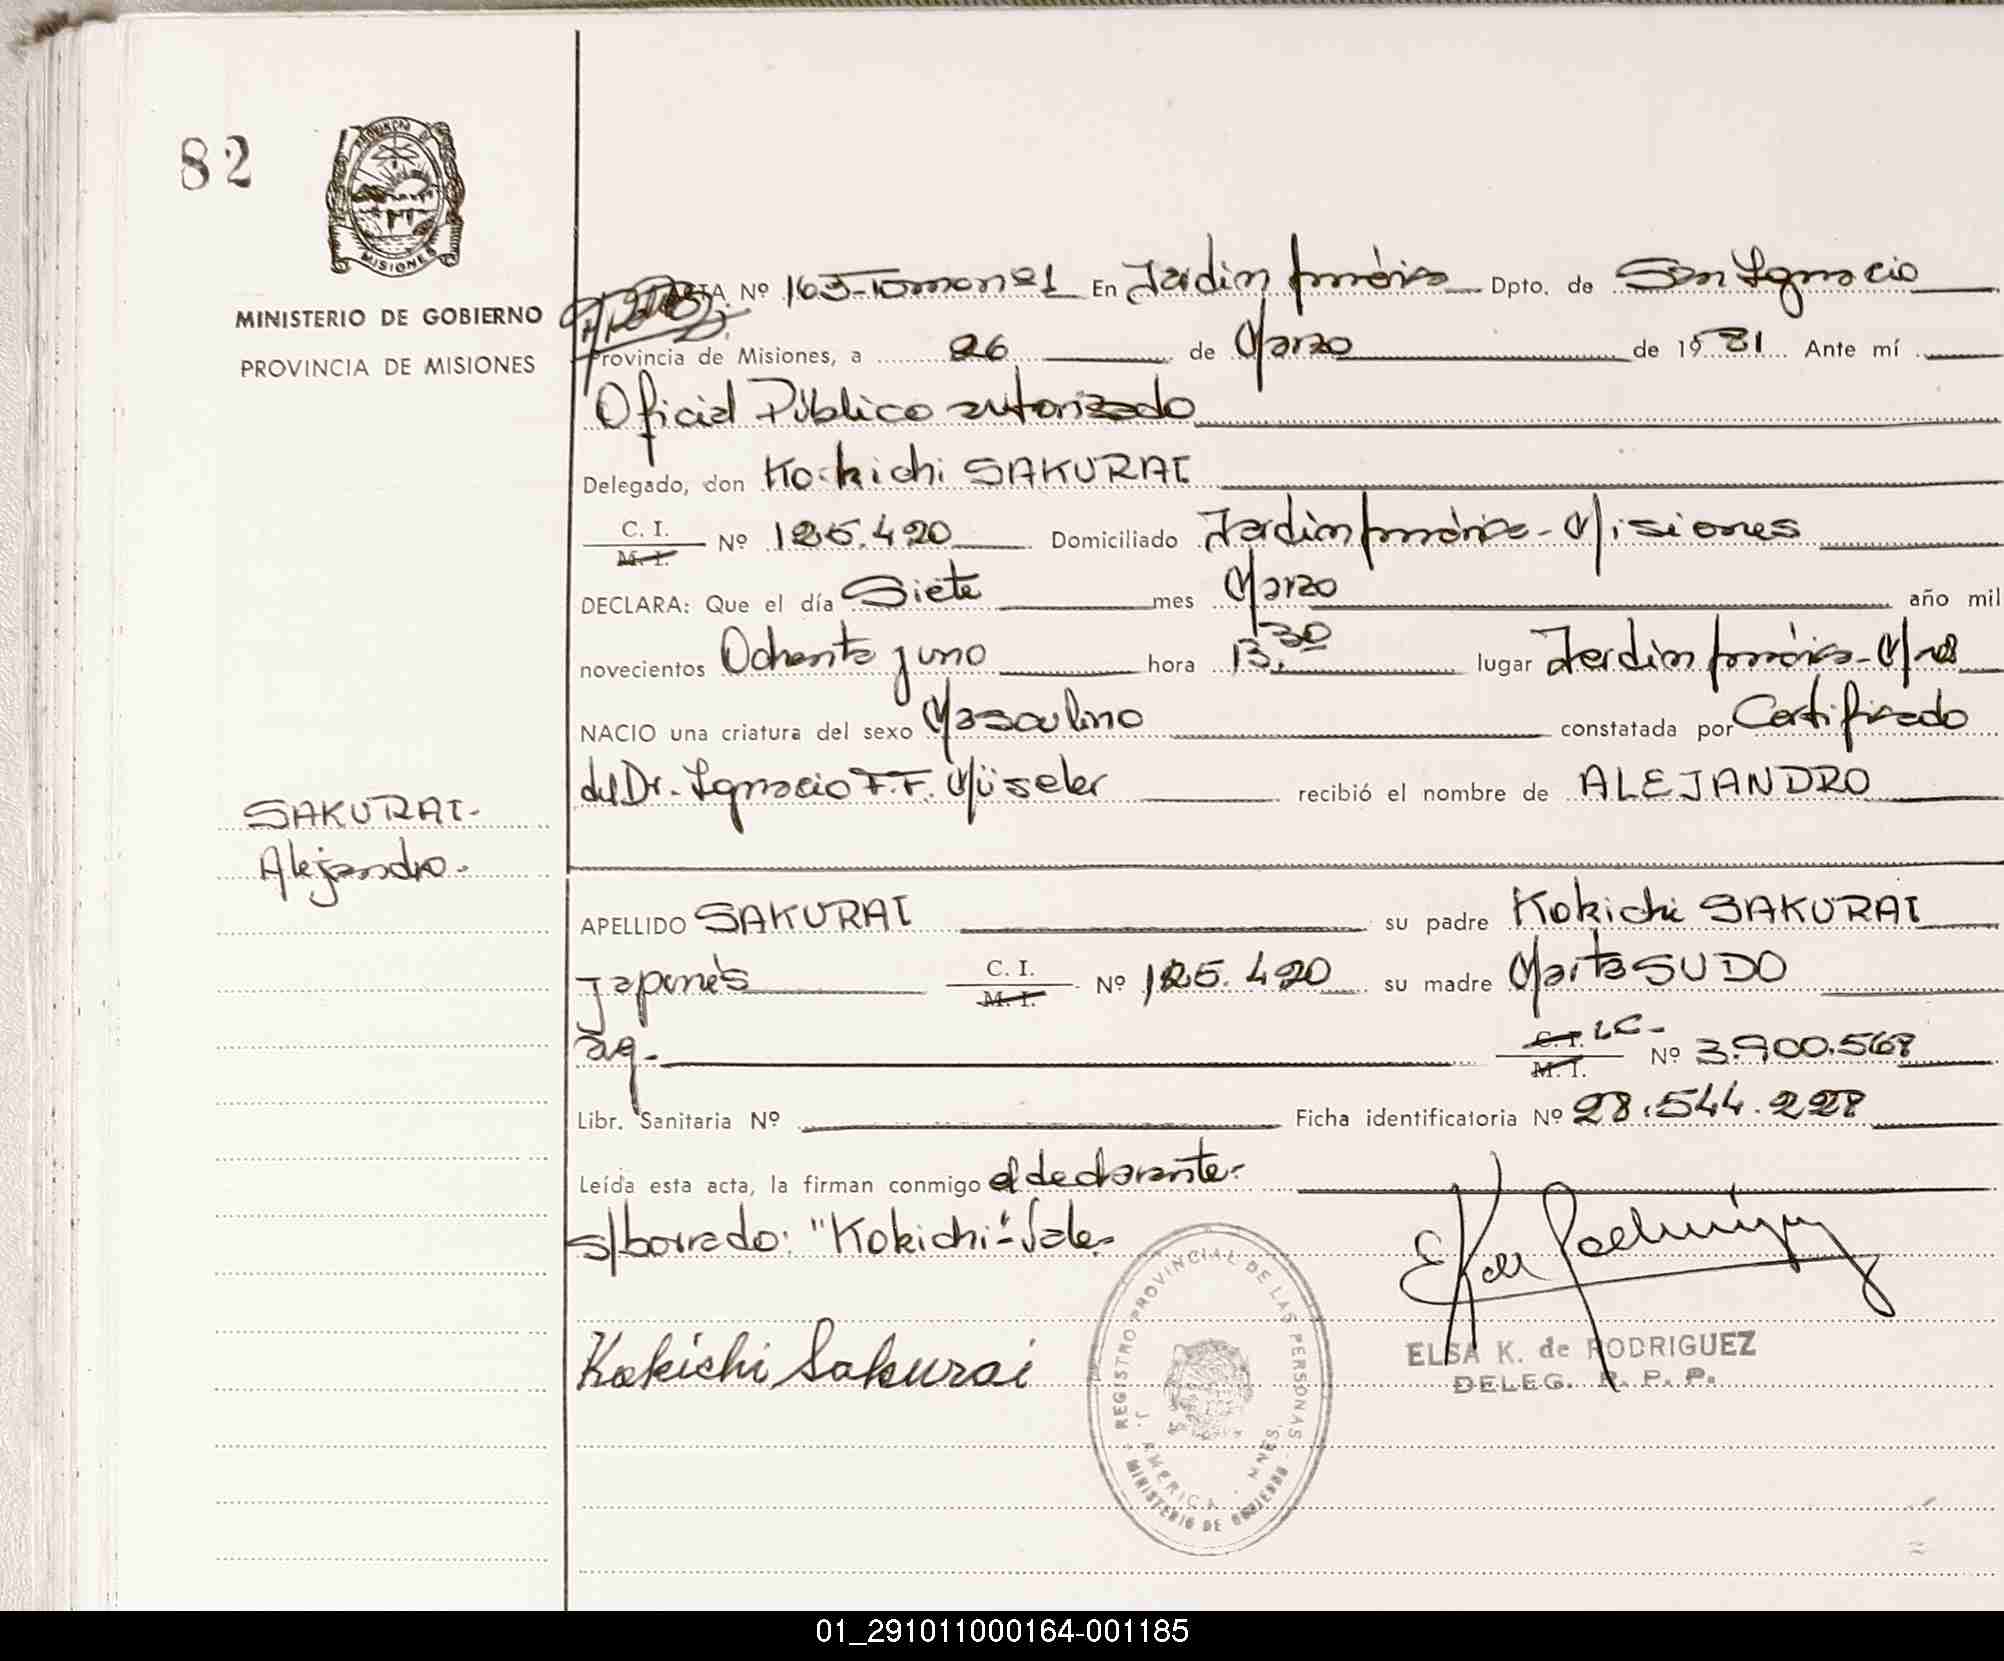 82
PROVINCIA DE
MISIONES
MINISTERIO DE GOBIERNO
PROVINCIA DE MISIONES
ACTA Nº 163-Tomo nº1 En Jardín América Dpto. de San Ignacio
Provincia de Misiones, a 26 de Marzo de 1981 Ante mí
Oficial Público autorizado
Delegado, don Kokichi SAKURAI
C. I.
M. I. Nº 125.420 Domiciliado Jardín América - Misiones
DECLARA: Que el día Siete mes Marzo año mil
novecientos Ochenta y uno hora 13.30 lugar Jardín América - Mnes
NACIO una criatura del sexo Masculino constatada por Certificado
del Dr. Ignacio F.F. Müseler recibió el nombre de ALEJANDRO
SAKURAI.
Alejandro.
APELLIDO SAKURAI su padre Kokichi SAKURAI
japonés C. I. M. I. Nº 125.420 su madre Marta SUDO
arg. C. I. M. I. LC- Nº 3.900.568
Libr. Sanitaria Nº Ficha identificatoria Nº 28.544.228
Leída esta acta, la firman conmigo el declarante.
s/borrado: "Kokichi"-Vale.
Kokichi Sakurai
REGISTRO PROVINCIAL DE LAS PERSONAS
J. AMERICA - MNES.
MINISTERIO DE GOBIERNO
ELSA K. de RODRIGUEZ
DELEG. R. P. P.
01_291011000164-001185